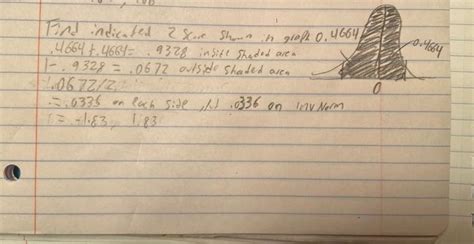 Find indicated z score shown in graph 0.4664
0.4664
.4664 + .4664 = .9328 inside shaded area
1 - .9328 = .0672 outside shaded area
.0672/2
0
= .0336 on each side, .0336 on invNorm
= -1.83, 1.83